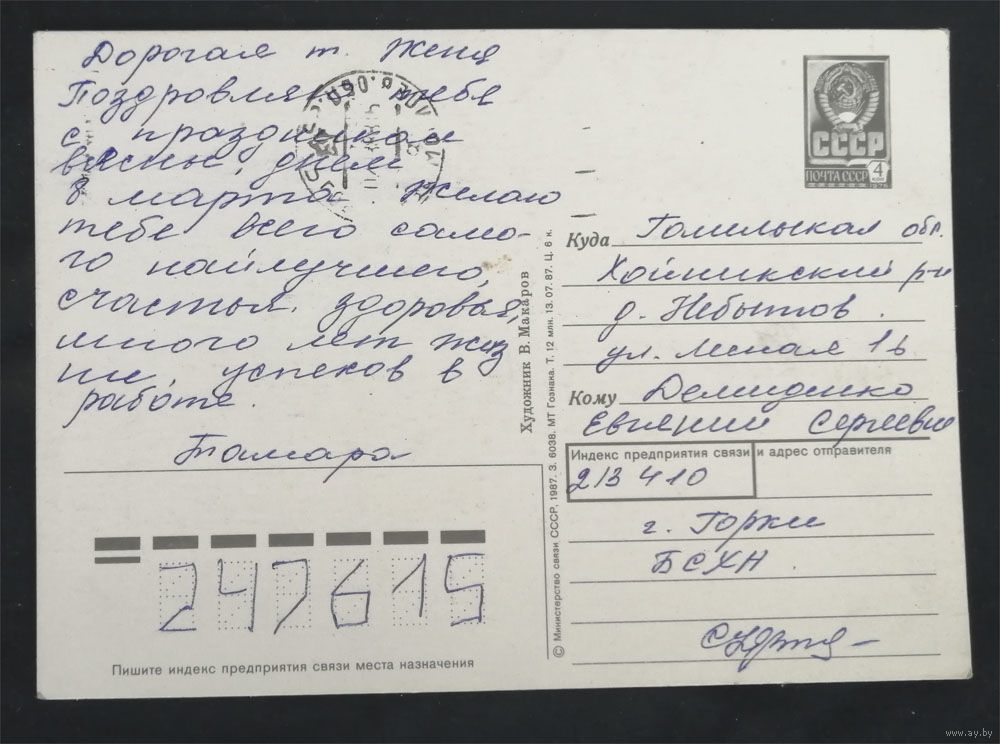 Дорогая т. Женя
Поздравляю тебя
с праздником
весны, днем
8 марта Желаю
тебе всего само-
го наилучшего,
счастья здоровья,
много лет жиз
ни, успехов в
работе.
Тамара
СССР
ПОЧТА СССР
4
КОП
1976
Куда Гомильская обл.
Хойникский р-н
д. Небытов.
ул. Лесная 1 в
Кому Демиденко
Евгении Сергеевне
Индекс предприятия связи и адрес отправителя
213 410
г. Горки
БСХН
Художник В. Макаров
© Министерство связи СССР, 1987. З. 6038. МТ Гознака. Т. 12 млн. 13. 07. 87. Ц. 6 к.
247615
Пишите индекс предприятия связи места назначения
www.ay.by